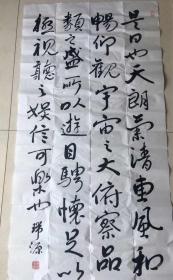 是日也天朗氣清惠風和
暢仰觀宇宙之大俯察品
類之盛所以遊目騁懷足以
極視聽之娛信可樂也 瑞源